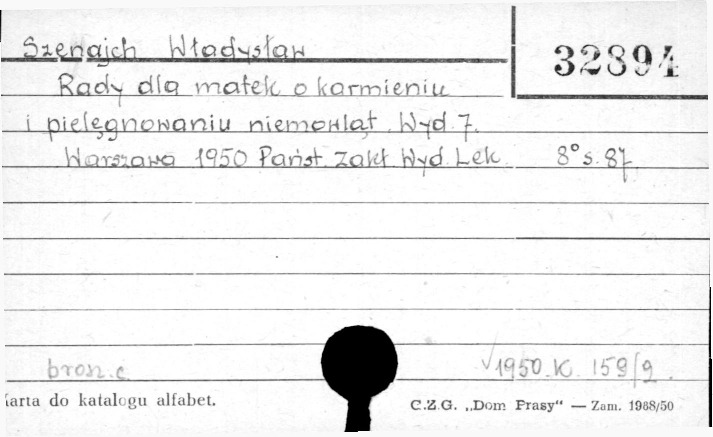 Szenajch Władysław
32894
Rady dla matek o karmieniu
i pielęgnowaniu niemowląt. Wyd. 7.
Warszawa 1950 Państ. Zakł. Wyd. Lek. 8° s. 87.
brosz. c
√1950. K. 159/9.
Karta do katalogu alfabet.
C.Z.G. „Dom Prasy“ — Zam. 1988/50